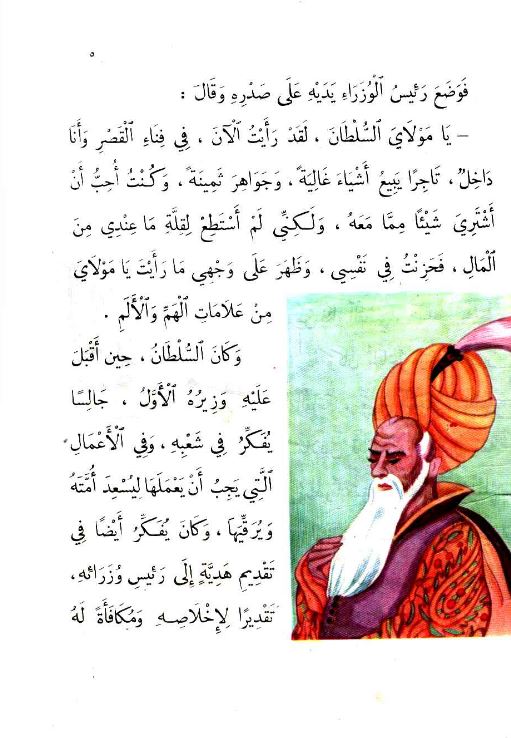 ٥
فَوَضَعَ رَئِيسُ ٱلْوُزَرَاءِ يَدَيْهِ عَلَى صَدْرِهِ وَقَالَ :
– يَا مَوْلَايَ ٱلسُّلْطَانَ ، لَقَدْ رَأَيْتُ ٱلْآنَ ، فِي فِنَاءِ ٱلْقَصْرِ وَأَنَا
دَاخِلٌ ، تَاجِرًا يَبِيعُ أَشْيَاءَ غَالِيَةً ، وَجَوَاهِرَ ثَمِينَةً ، وَكُنْتُ أُحِبُّ أَنْ
أَشْتَرِيَ شَيْئًا مِمَّا مَعَهُ ، وَلَكِنِّي لَمْ أَسْتَطِعْ لِقِلَّةِ مَا عِنْدِي مِنَ
ٱلْمَالِ ، فَحَزِنْتُ فِي نَفْسِي ، وَظَهَرَ عَلَى وَجْهِي مَا رَأَيْتَ يَا مَوْلَايَ
مِنْ عَلَامَاتِ ٱلْهَمِّ وَٱلْأَلَمِ .
وَكَانَ ٱلسُّلْطَانُ ، حِين أَقْبَلَ
عَلَيْهِ وَزِيرُهُ ٱلْأَوَّلُ ، جَالِسًا
يُفَكِّرُ فِي شَعْبِهِ ، وَفِي ٱلْأَعْمَالِ
ٱلَّتِي يَجِبُ أَنْ يَعْمَلَهَا لِيُسْعِدَ أُمَّتَهُ
وَيُرَقِّيَهَا ، وَكَانَ يُفَكِّرُ أَيْضًا فِي
تَقْدِيمِ هَدِيَّةٍ إِلَى رَئِيسِ وُزَرَائِهِ ،
تَقْدِيرًا لِإِخْلَاصِهِ وَمُكَافَأَةً لَهُ